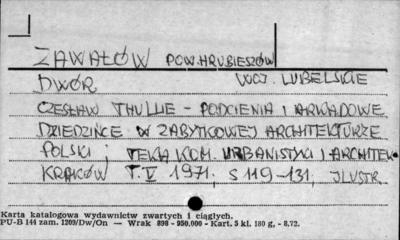 ZAWAŁÓW POW. HRUBIESZÓW
DWÓR WOJ. LUBELSKIE
CZESŁAW THULLIE - PODCIENIA I ARKADOWE
DZIEDZIŃCE W ZABYTKOWEJ ARCHITEKTURZE
POLSKI; TEKA KOM. URBANISTYKI I ARCHITEK.
KRAKÓW T.V 1971, S 119-131, ILUSTR.
Karta katalogowa wydawnictw zwartych i ciągłych.
PU-B 144 zam. 1209/Dw/On — Wrak 898 - 950.000 - Kart. 5 kl. 180 g. - 8.72.